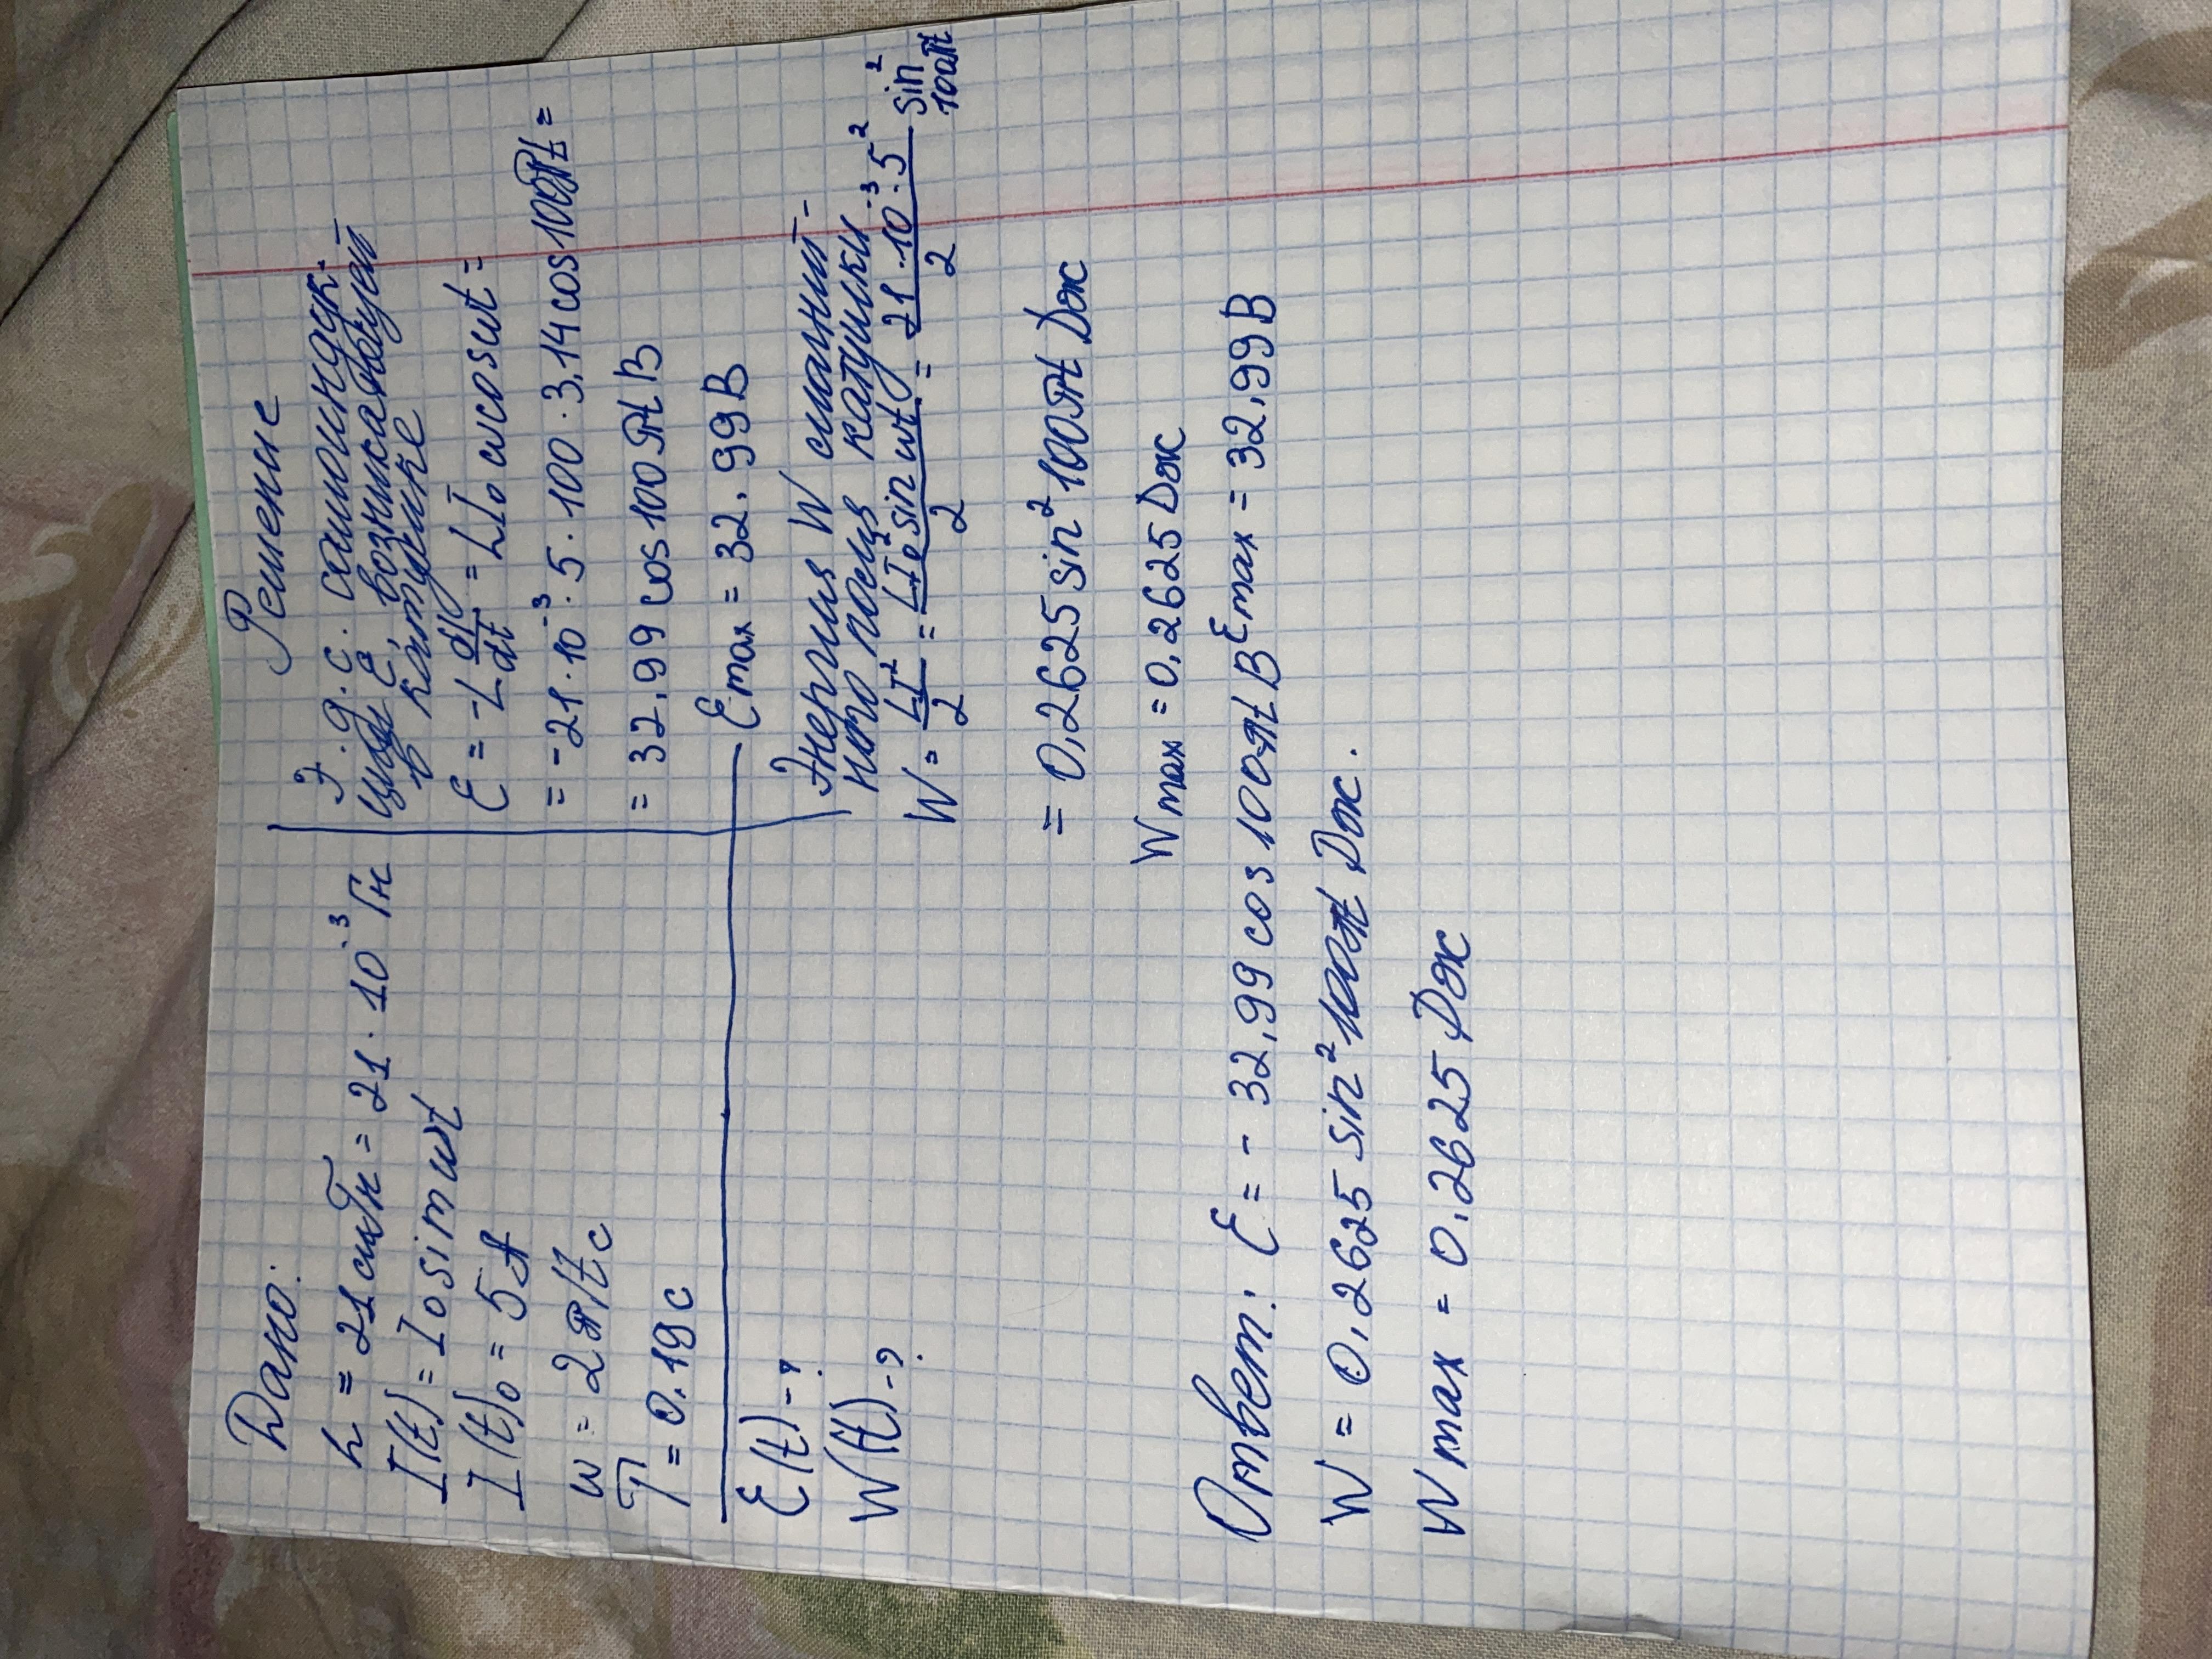 Дано:
L = 21 мГн = 21 · 10⁻³ Гн
I(t) = I₀ sin wt
I(t)₀ = 5 А
w = 2π/tc
T = 0,19 с
ε(t) - ?
W(t) - ?
Решение
Э.д.с. самоиндук-
ции ε, возникающей
в катушке
ε = -L dI/dt = LI₀ w cos wt =
= -21 · 10⁻³ · 5 · 100 · 3,14 cos 100πt =
= 32,99 cos 100πt В
εmax = 32,99 В
Энергия W магнит-
ного поля катушки
W = LI²/2 = LI₀² sin wt/2 = 21 · 10⁻³ · 5²/2 sin² 100πt
= 0,2625 sin² 100πt Дж
Wmax = 0,2625 Дж
Ответ: ε = - 32,99 cos 100πt В εmax = 32,99 В
W = 0,2625 sin² 100πt Дж.
Wmax = 0,2625 Дж